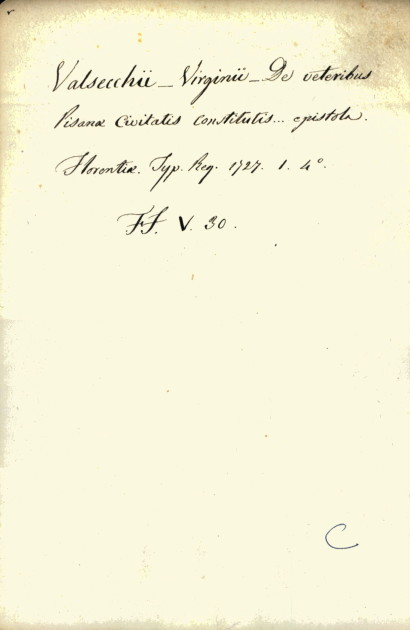 Valsecchii _ Virginii _ De veteribus
Pisanæ Civitatis constitutis... epistola.
Florentiæ. Typ. Reg. 1727. 1. 4°.
FF. V. 30.
C